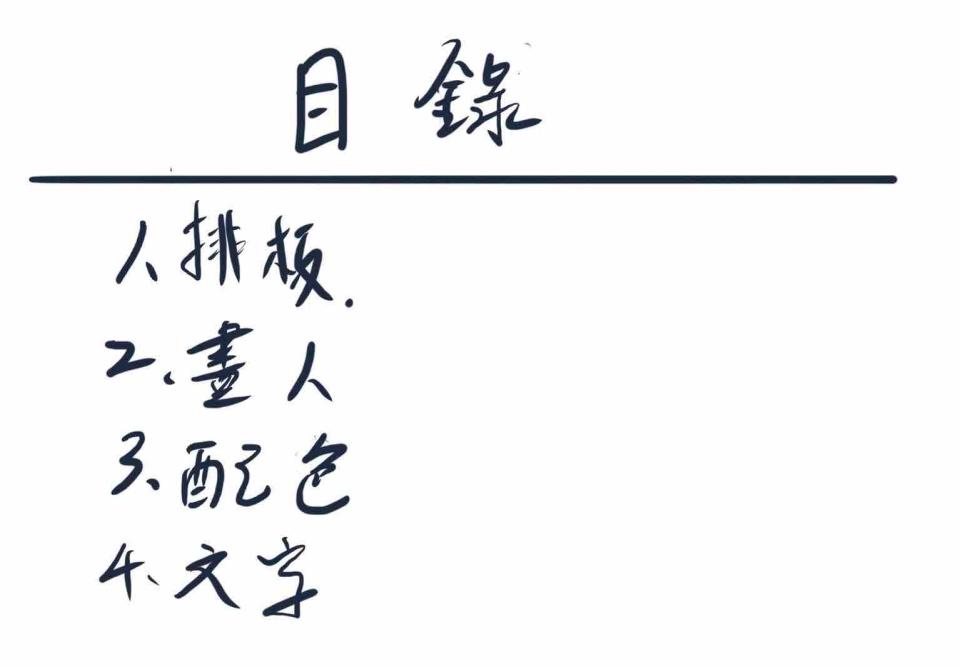 目錄
1、排板.
2、畫人
3、配色
4、文字